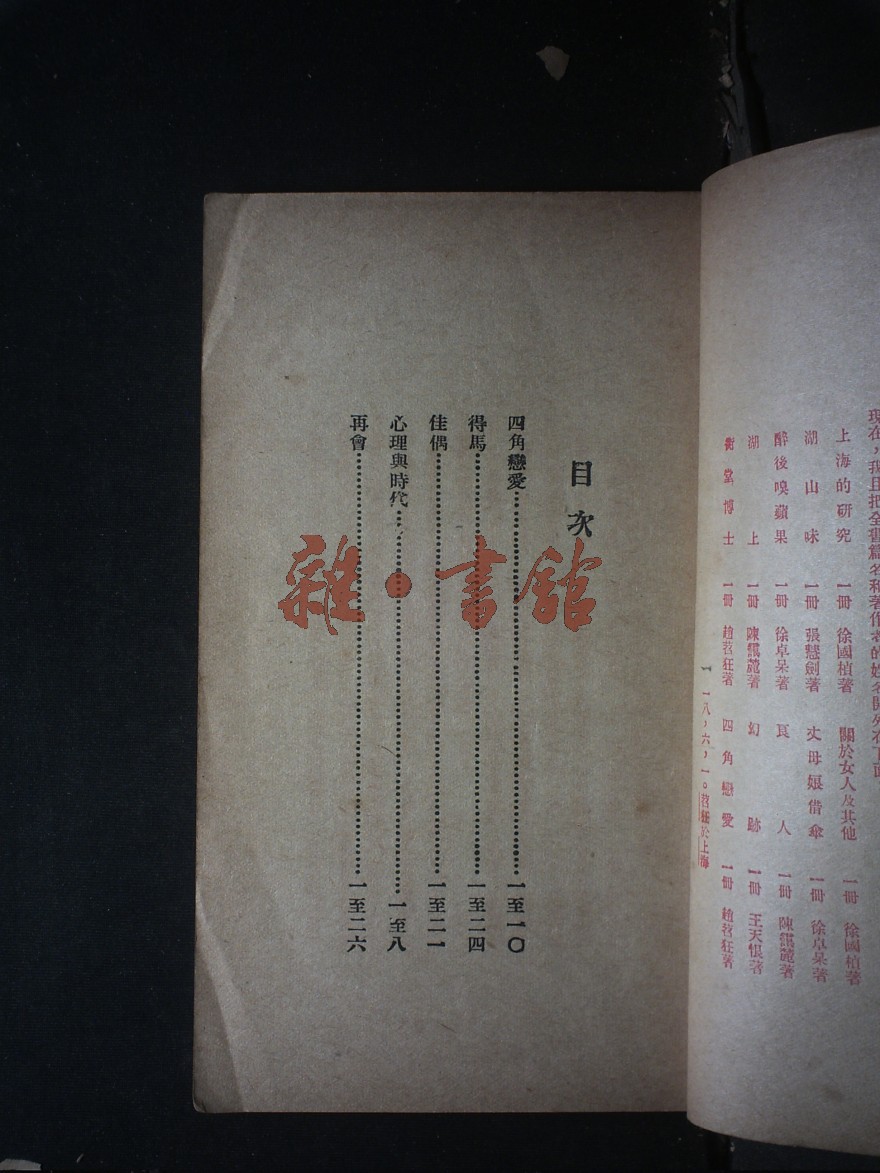 現在，我且把全書篇名和著作者的姓名開列在下面
上海的研究　一冊　徐國楨著　關於女人及其他　一冊　徐國楨著
湖山味　一冊　張慧劍著　丈母娘借傘　一冊　徐卓呆著
醉後嗅蘋果　一冊　徐卓呆著　良人　一冊　陳靄麓著
湖上　一冊　陳靄麓著　幻跡　一冊　王天恨著
衖堂博士　一冊　趙苕狂著　四角戀愛　一冊　趙苕狂著
一八，六，一。苕狂於上海
目次
四角戀愛……一至一〇
得馬……一至二四
佳偶……一至二一
心理與時代……一至八
再會……一至二六
雜·書館